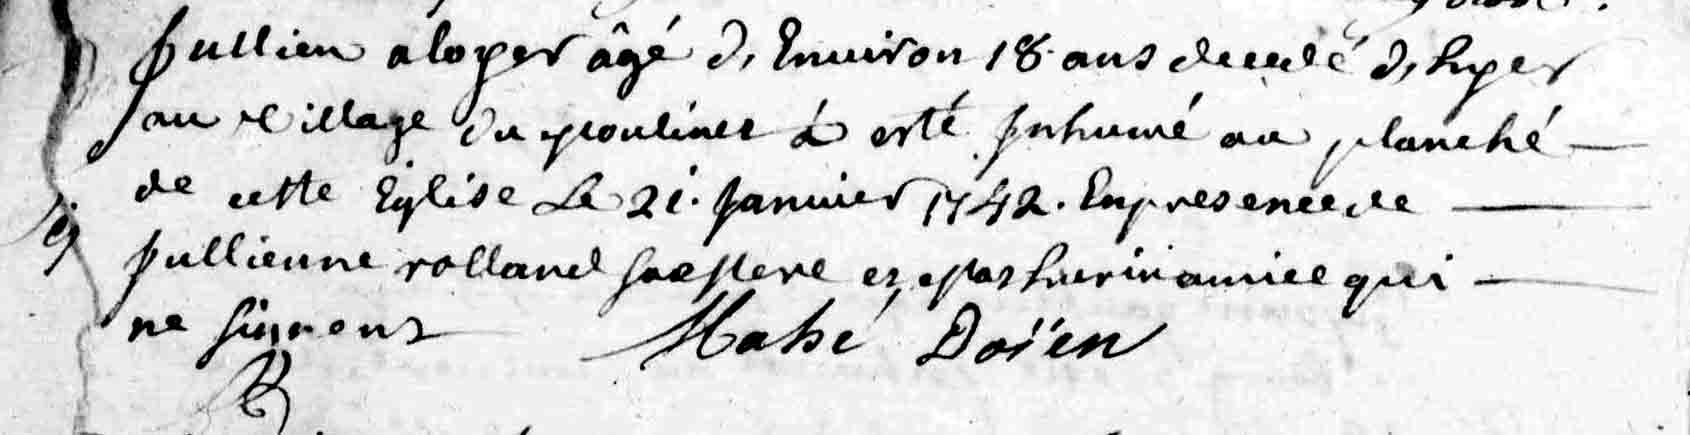 Jullien aloyer âgé d, Environ 18 ans decedé d, hyer
au village du moulinet à esté Inhumé au planché
de cette Eglise Le 21. Janvier 1742. En presence de
Jullienne rolland sa mere et mathurin amice qui
ne signent Mahé Doïen